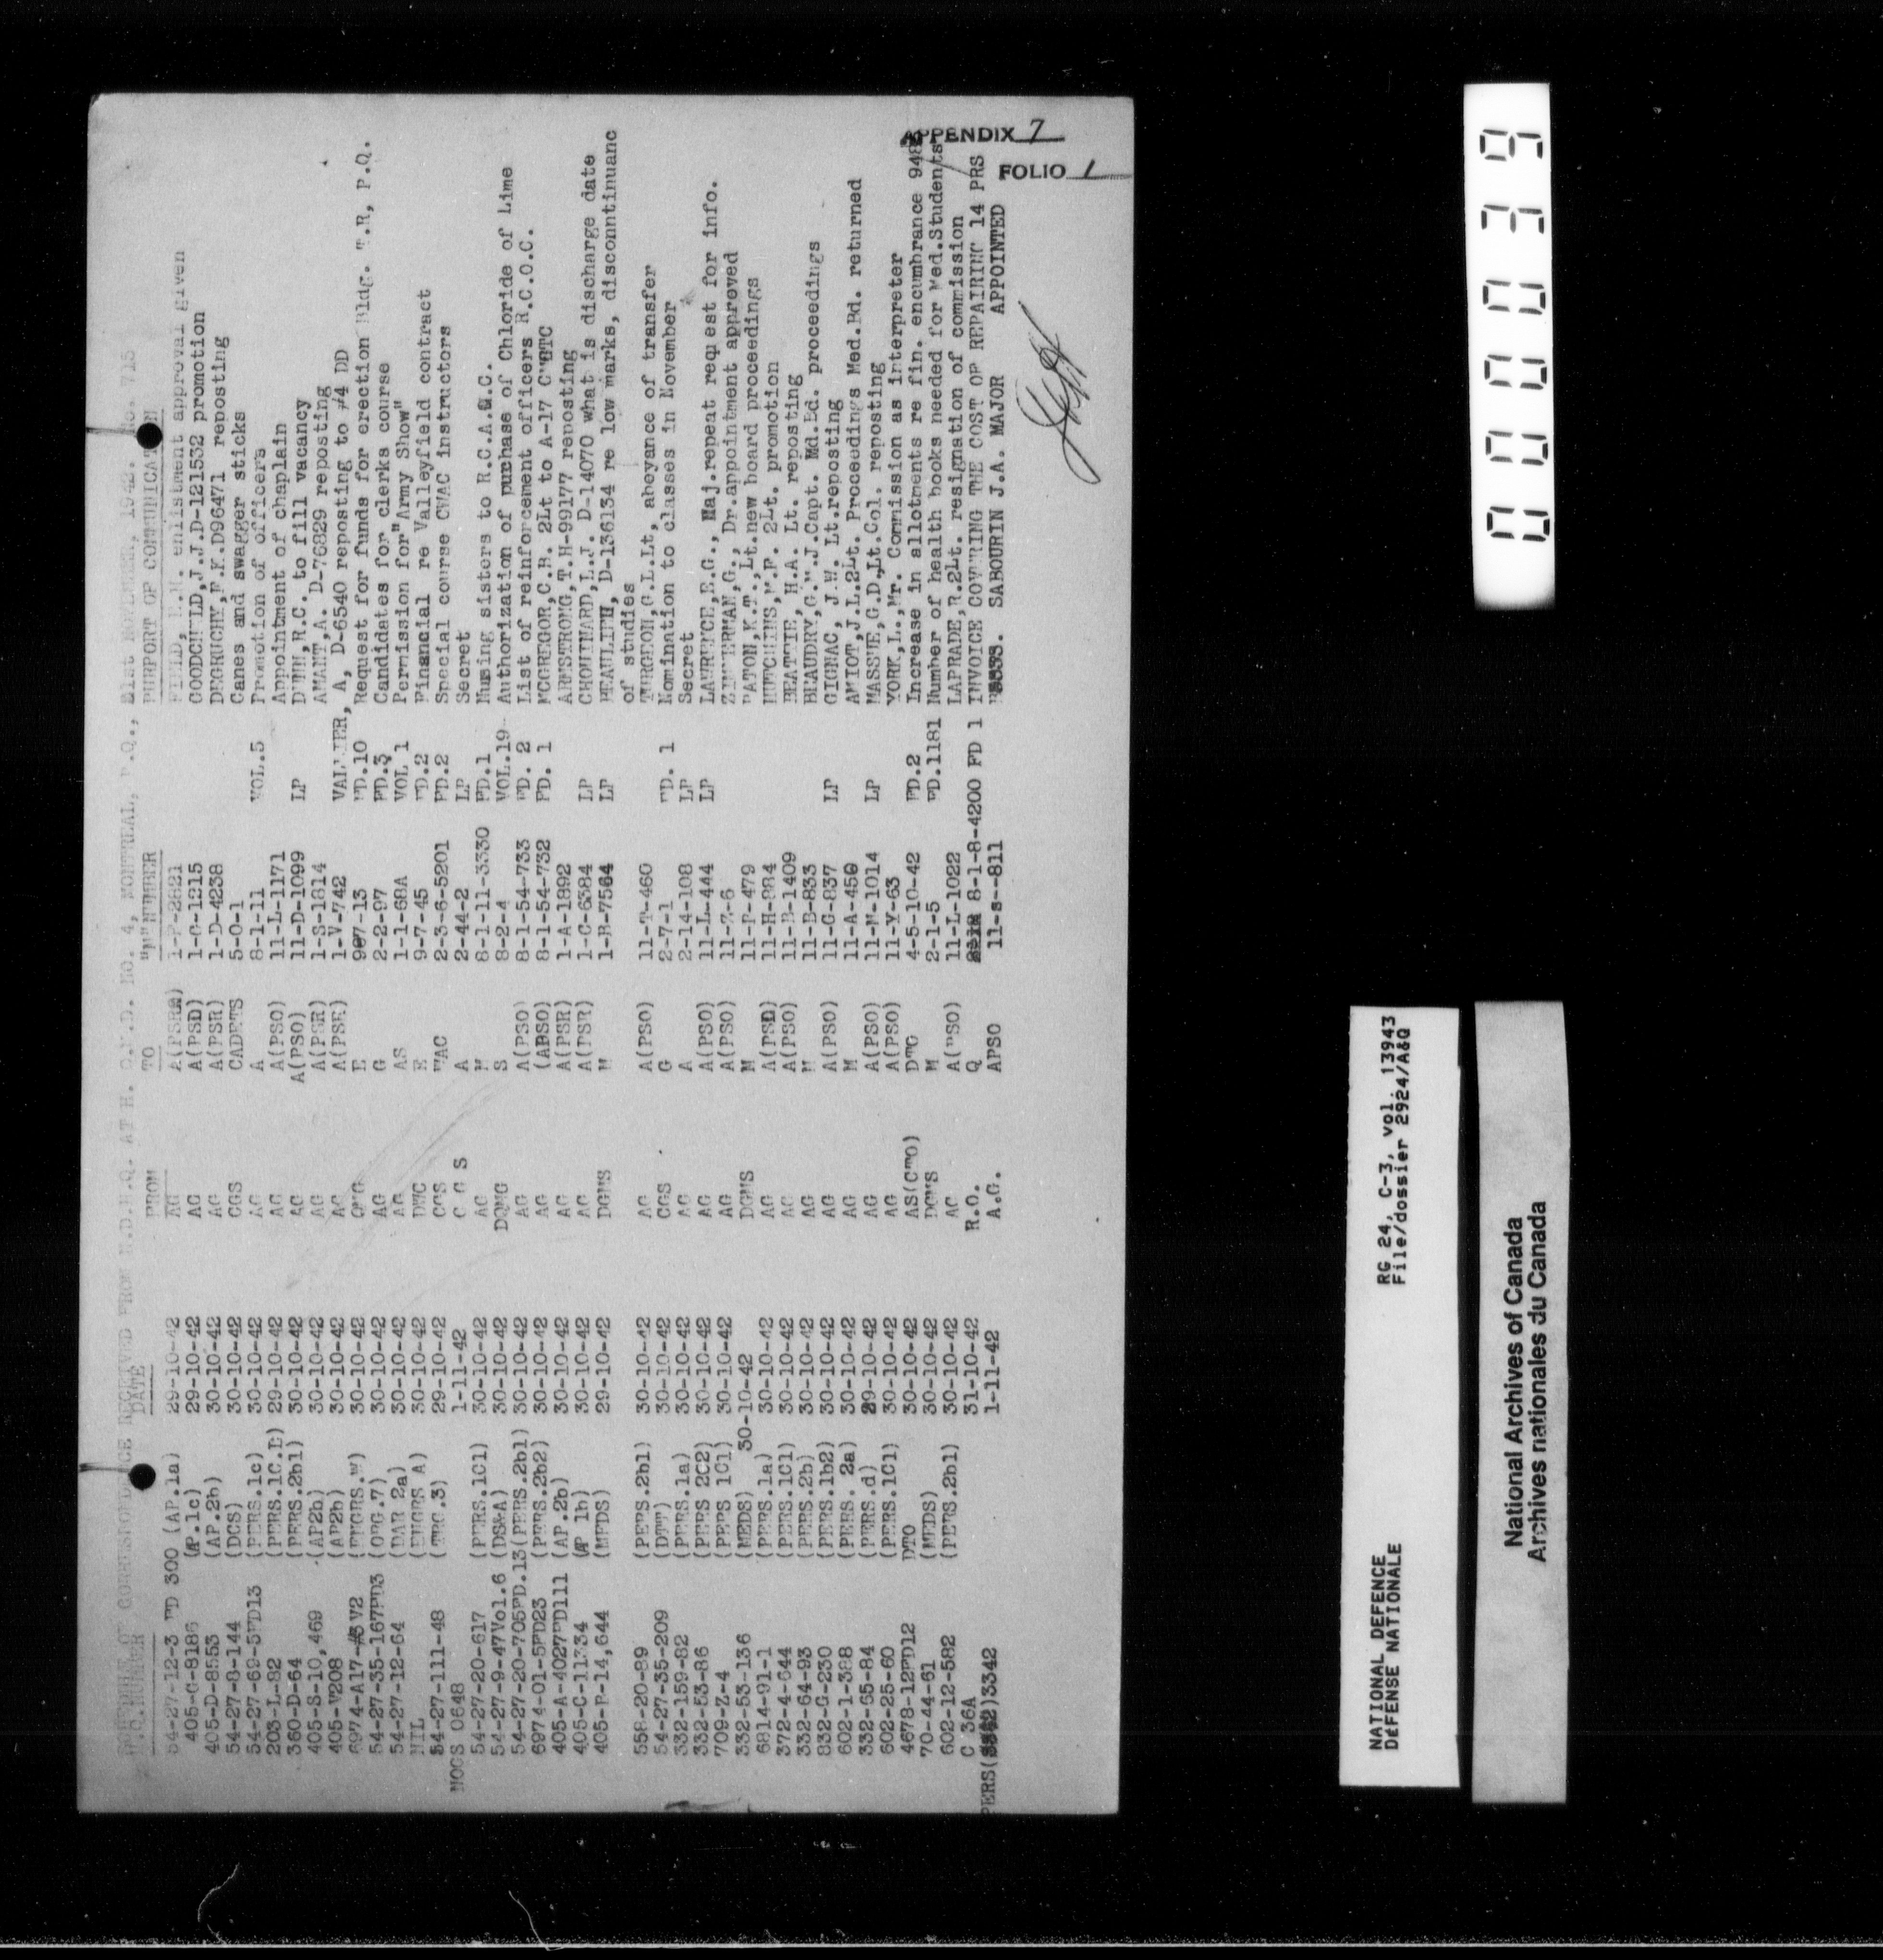 APPENDIX 7
FOLIO 1
SCHEDULE OF CORRESPONDENCE RECEIVED FROM N.D.H.Q. AT H. Q. M.D. NO. 4, MONTREAL, P.Q., 21st NOVEMBER, 1942. No. V15
H.Q. NUMBER DATE FROM TO "M"NUMBER PURPORT OF COMMUNICATION
54-27-12-3 FD 300 (AP.1a) 29-10-42 AG 1-F-2821 FIELD, enlistment approval given
405-G-8186 (AP.1c) 29-10-42 AG A(PSD) 1-G-1215 GOODCHILD,J.J.D-121532 promotion
405-D-8553 (AP.2b) 30-10-42 AG A(PSR) 1-D-4238 DEGRUCHY,F.K.D96471 reposting
54-27-8-144 (DCS) 30-10-42 CGS CADETS 5-0-1 Canes and swagger sticks
54-27-69-5FD13 (PERS.1c) 30-10-42 AG A 8-1-11 VOL.5 Promotion of officers
203-L-82 (PERS.1C.D) 29-10-42 AG A(PSO) 11-L-1171 Appointment of chaplain
360-D-64 (PERS.2b1) 30-10-42 AG A(PSO) 11-D-1099 LP DUNN,R.C. to fill vacancy
405-S-10,469 (AP2b) 30-10-42 AG A(PSR) 1-S-1814 AMANT,A. D-76829 reposting
405-V208 (AP2b) 30-10-42 AG A(PSR) 1-V-742 VALLIER, A, D-6540 reposting to #4 DD
6974-A17-#3V2 (ENGRS.w) 30-10-42 QMG E 907-13 FD.10 Request for funds for erection Bldg. T.R, P.Q.
54-27-35-167FD3 (ORG.7) 30-10-42 AG G 2-2-97 FD.3 Candidates for clerks course
54-27-12-64 (DAR 2a) 30-10-42 AG AS 1-1-68A VOL 1 Permission for"Army Show"
NIL (ENGRS A) 30-10-42 E 9-7-45 FD.2 Financial re Valleyfield contract
54-27-111-48 (TRG.3) 29-10-42 CGS WAC 2-3-6-5201 FD.2 Special course CWAC instructors
NOGS 0648 1-11-42 C G S A 2-44-2 LP Secret
54-27-20-617 (PERS.1C1) 30-10-42 AG M 8-1-11-3330 FD.1 Nursing sisters to R.C.A.M.C.
54-27-9-47Vol.6 (DS&A) 30-10-42 DQMG S 8-2-4 VOL.19 Authorization of purchase of Chloride of Lime
54-27-20-705FD.13(PERS.2b1) 30-10-42 AG A(PSO) 8-1-54-733 FD. 2 List of reinforcement officers R.C.O.C.
6974-01-5FD23 (PERS.2b2) 30-10-42 AG (ABSO) 8-1-54-732 FD. 1 MCGREGOR,C.B. 2Lt to A-17
405-A-4027FD111 (AP.2b) 30-10-42 AG A(PSR) 1-A-1892 ARMSTRONG,T.H-99177 reposting
405-C-11734 (AP 1b) 30-10-42 AG A(PSR) 1-C-6384 LP CHOUINARD,L.J. D-14070 what is discharge date
405-P-14,644 (MEDS) 29-10-42 DGMS M 1-B-7564 LP BEAULIEU, D-136134 re low marks, disconntinuanc
of studies
558-20-89 (PERS.2b1) 30-10-42 AG A(PSO) 11-T-460 TURGEON,G.L.Lt, abeyance of transfer
54-27-35-209 (DTT) 30-10-42 CGS G 2-7-1 FD. 1 Nomination to classes in November
332-159-82 (PERS.1a) 30-10-42 AG A 2-14-108 LP Secret
332-53-86 (PERS 2C2) 30-10-42 AG A(PSO) 11-L-444 LP LAWRENCE,E.G., Maj.repeat request for info.
709-Z-4 (PERS 1C1) 30-10-42 AG A(PSO) 11-Z-6 ZIMMERMAN,G., Dr.appointment approved
332-53-136 (MEDS) 30-10-42 DGMS M 11-P-479 PATON,K.T.,Lt.new board proceedings
6814-91-1 (PERS.1a) 30-10-42 AG A(PSD) 11-H-884 HUTCHINS,M.F. 2Lt. promotion
372-4-644 (PERS.1C1) 30-10-42 AG A(PSO) 11-B-1409 BEATTIE, H.A. Lt. reposting
332-64-93 (PERS.2b) 30-10-42 AG M 11-B-833 BEAUDRY,G.M.J.Capt. Md.Bd. proceedings
832-G-230 (PERS.1b2) 30-10-42 AG A(PSO) 11-G-837 LP GIGNAC, J.W. Lt.reposting
602-1-388 (PERS. 2a) 30-10-42 AG M 11-A-450 AMIOT,J.L.2Lt. Proceedings Med.Bd. returned
332-65-84 (PERS.d) 29-10-42 AG A(PSO) 11-M-1014 LP MASSUE,G.D.,Lt.Col. reposting
602-25-60 (PERS.1C1) 30-10-42 AG A(PSO) 11-Y-63 YORK,L.,Mr. Commission as interpreter
4678-12FD12 DTO 30-10-42 AS(CTO) DTG 4-5-10-42 FD.2 Increase in allotments re fin. encumbrance 948
70-44-61 (MEDS) 30-10-42 DGMS M 2-1-5 FD.1181 Number of health books needed for Med.Students
602-12-582 (PERS.2b1) 30-10-42 AG A(PSO) 11-L-1022 LAPRADE,R.2Lt. resignation of commission
C 36A 31-10-42 R.O. Q 8-1-8-4200 FD 1 INVOICE COVERING THE COST OF REPAIRING 14 PRS
PERS( )3342 1-11-42 A.G. APSO 11-s--811 SABOURIN J.A. MAJOR APPOINTED
000039
NATIONAL DEFENCE
DÉFENSE NATIONALE
RG 24, C-3, vol. 13943
File/dossier 2924/A&Q
National Archives of Canada
Archives nationales du Canada